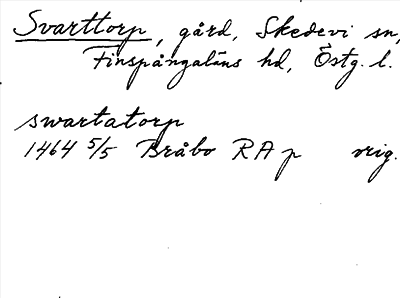 Svarttorp, gård, Skedevi sn,
Finspångaläns hd, Östg. l.
swartatorp
1464 5/5 Bråbo RA p orig.